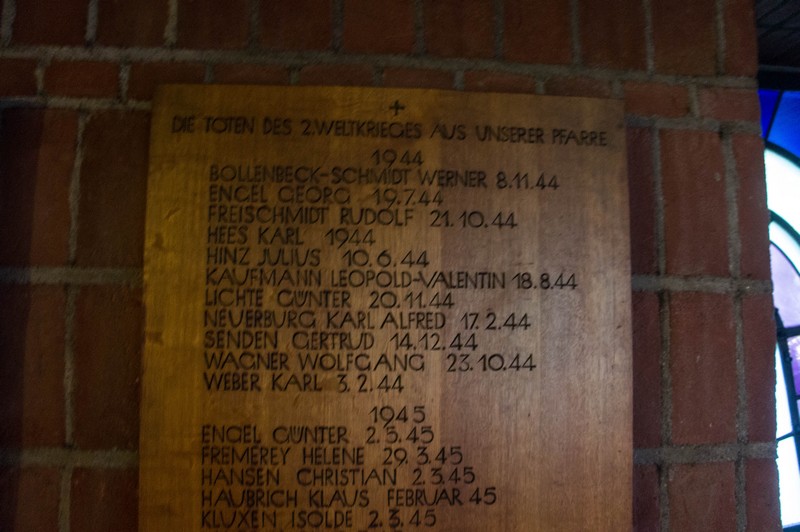 DIE TOTEN DES 2. WELTKRIEGES AUS UNSERER PFARRE
1944
BOLLENBECK-SCHMIDT WERNER 8.11.44
ENGEL GEORG 19.7.44
FREISCHMIDT RUDOLF 21.10.44
HEES KARL 1944
HINZ JULIUS 10.6.44
KAUFMANN LEOPOLD-VALENTIN 18.8.44
LICHTE GÜNTER 20.11.44
NEUERBURG KARL ALFRED 17.2.44
SENDEN GERTRUD 14.12.44
WAGNER WOLFGANG 23.10.44
WEBER KARL 3.2.44
1945
ENGEL GÜNTER 2.5.45
FREMEREY HELENE 29.3.45
HANSEN CHRISTIAN 2.3.45
HAUBRICH KLAUS FEBRUAR 45
KLUXEN ISOLDE 2.3.45